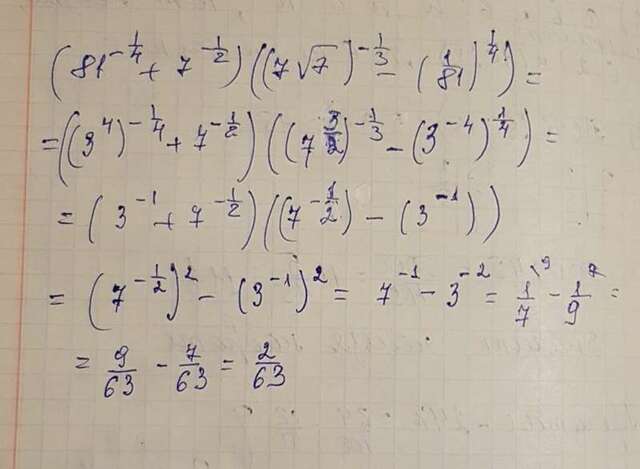 (81^{-1/4} + 7^{-1/2})((7√7)^{-1/3} - (1/81)^{1/4}) =
= ((3^4)^{-1/4} + 7^{-1/2})((7^{3/2})^{-1/3} - (3^{-4})^{1/4}) =
= (3^{-1} + 7^{-1/2})((7^{-1/2}) - (3^{-1}))
= (7^{-1/2})^2 - (3^{-1})^2 = 7^{-1} - 3^{-2} = 1/7 \9 - 1/9 \7 =
= 9/63 - 7/63 = 2/63